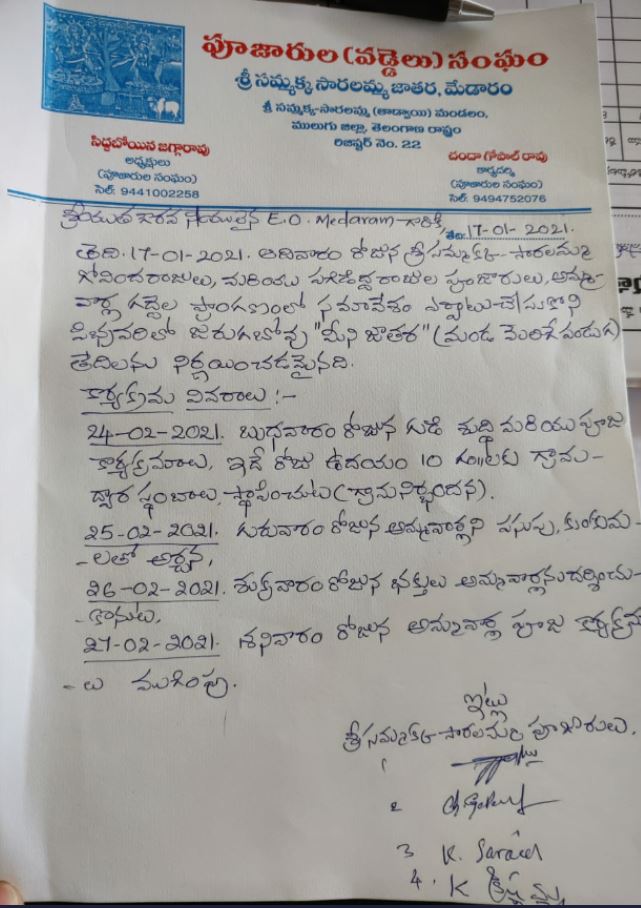 పూజారుల (వడ్డెలు) సంఘం
శ్రీ సమ్మక్క సారలమ్మ జాతర, మేడారం
శ్రీ సమ్మక్క-సారలమ్మ (తాడ్వాయి) మండలం,
ములుగు జిల్లా, తెలంగాణ రాష్ట్రం
రిజిష్టర్ నెం. 22
సిద్దబోయిన జగ్గారావు
అధ్యక్షులు
(పూజారుల సంఘం)
సెల్: 9441002258
చందా గోపాల్ రావు
కార్యదర్శి
(పూజారుల సంఘం)
సెల్: 9494752076
శ్రీయుత గౌరవ నీయులైన E.O. Medaram గారికి,
తేది: 17-01-2021.
తేది. 17-01-2021. ఆదివారం రోజున శ్రీ సమ్మక్క-సారలమ్మ
గోవిందరాజులు, మరియు పగిడిద్ద రాజుల పూజారులు, అమ్మ-
వార్ల గద్దెల ప్రాంగణంలో సమావేశం ఏర్పాటు చేసుకొని
ఫిబ్రవరిలో జరుగబోవు "మీని జాతర" (మండ మెలిగే పండుగ)
తేదిలను నిర్ణయించడమైనది.
కార్యక్రమ వివరాలు :-
24-02-2021. బుధవారం రోజున గుడి శుద్ధి మరియు పూజ
కార్యక్రమాలు, ఇదే రోజు ఉదయం 10 గం॥లకు గ్రామ-
ద్వార స్థంబాలు స్థాపించుట (గ్రామనిర్భందన).
25-02-2021. గురువారం రోజున అమ్మవార్లని పసుపు, కుంకుమ-
-లతో అర్చన,
26-02-2021. శుక్రవారం రోజున భక్తులు అమ్మవార్లను దర్శించు-
-కొనుట,
27-02-2021. శనివారం రోజున అమ్మవార్ల పూజ కార్యక్రమ
-లు ముగింపు.
ఇట్లు
శ్రీ సమ్మక్క-సారలమ్మ పూజారులు.
1
2
3 K. Saraiah
4. K